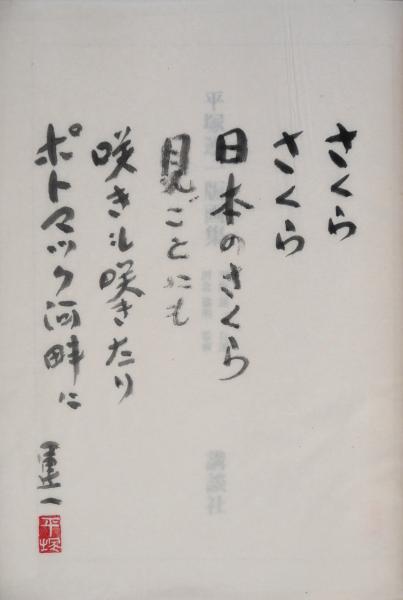 さくら
さくら
日本のさくら
見ごとにも
咲きも咲きたり
ポトマック河畔に
運一
平塚
講談社